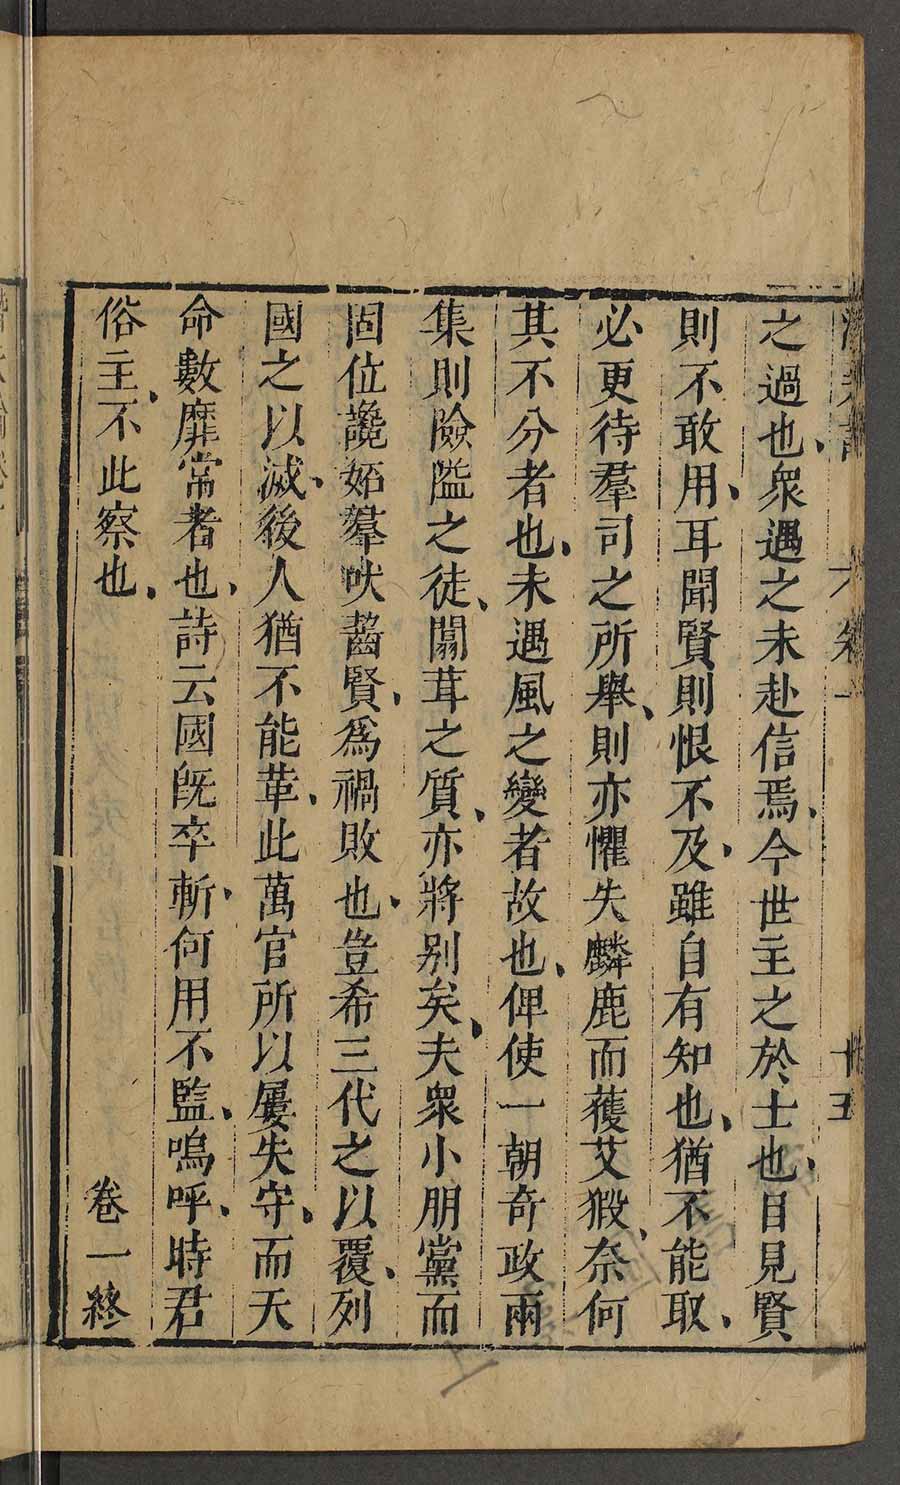 之過也、衆遇之未赴信焉、今世主之於士也、目見賢
則不敢用、耳聞賢則恨不及、雖自有知也、猶不能取、
必更待羣司之所舉、則亦懼失麟鹿而蒦艾猳、奈何
其不分者也、未遇風之變者故也、俾使一朝奇政兩
集則險隘之徒、闒茸之質、亦將别矣、夫衆小朋黨而
固位讒妬羣吠齧賢、爲禍敗也、豈希三代之以覆、列
國之以滅、後人猶不能革、此萬官所以屢失守、而天
命數靡常者也、詩云國旣卒斬、何用不監、嗚呼、時君
俗主、不此察也、
卷一終
卷一
十五